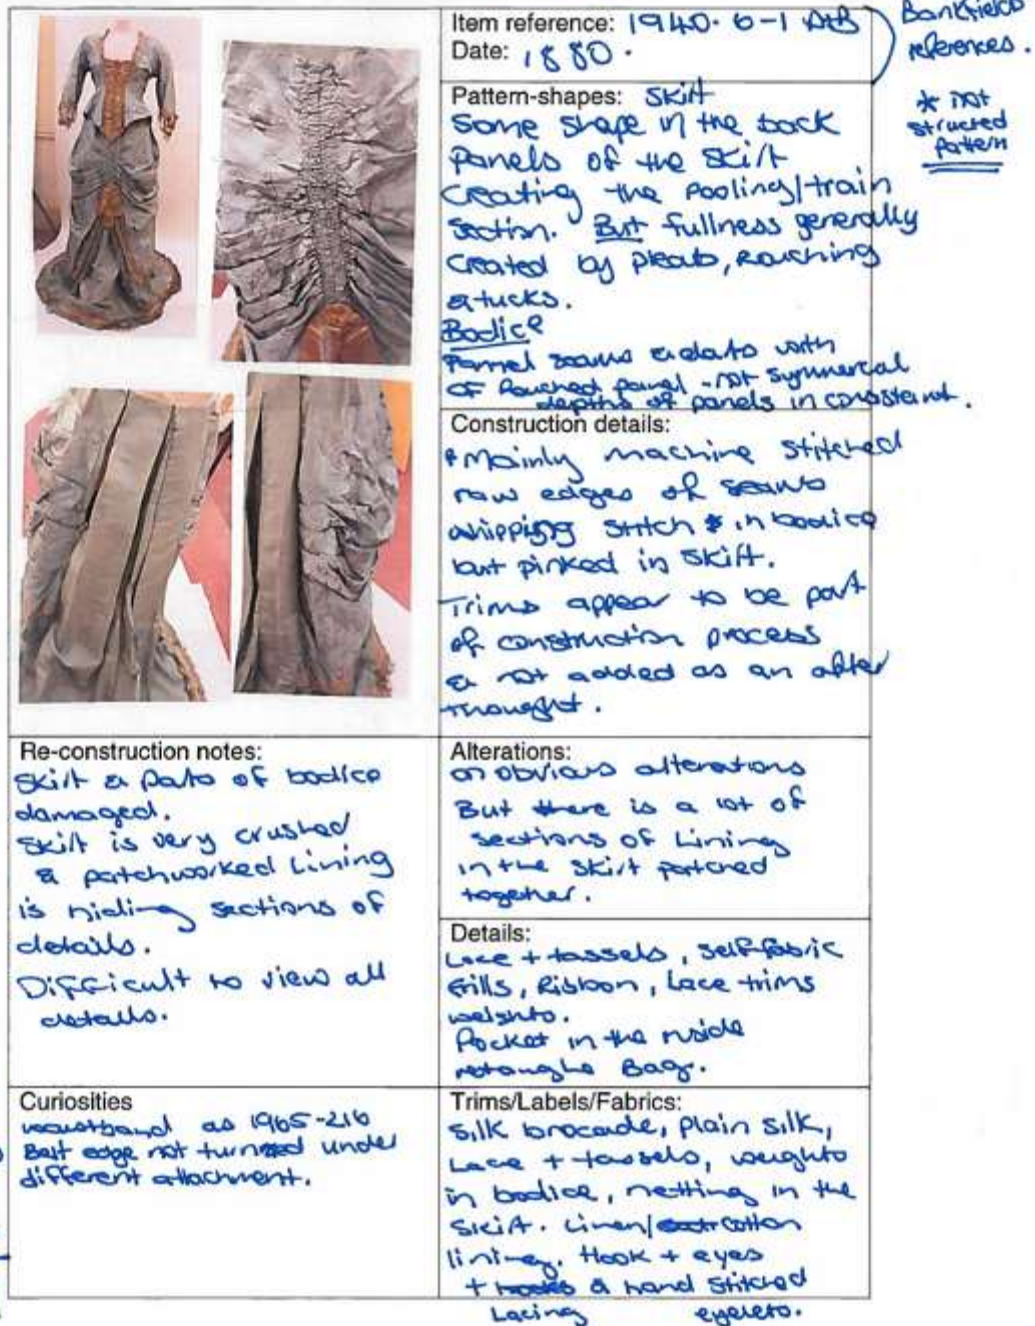 Item reference: 1940. 6-1 A+B
Date: 1880.
Bankfield
references.
Pattern-shapes: Skirt
Some shape in the back
panels of the skirt
creating the pooling/train
section. But fullness generally
created by pleats, rouching
& tucks.
* not
structed
pattern
Bodice
Pannel seams & darts with
CF Rouched panel - not symmercal
depths of panels inconsistent.
Construction details:
* Mainly machine stitched
raw edges of seams
whipping stitch in bodice
but pinked in skirt.
Trims appear to be part
of construction process
& not added as an after
thought.
Re-construction notes:
Skirt & parts of bodice
damaged.
Skirt is very crushed
& patchworked Lining
is hiding sections of
details.
Difficult to view all
details.
Alterations:
on obvious alterations
But there is a lot of
sections of Lining
in the skirt patched
together.
Details:
Lace + tassels, self-fabric
frills, Ribbon, Lace trims
weights.
Pocket in the inside
Bag.
Curiosities
waistband as 1965-216
Belt edge not turned under
different attachment.
Trims/Labels/Fabrics:
Silk brocade, plain silk,
Lace + tassels, weights
in bodice, netting in the
skirt. Linen/cotton
lining. Hook + eyes
+ & hand stitched
Lacing eyelets.